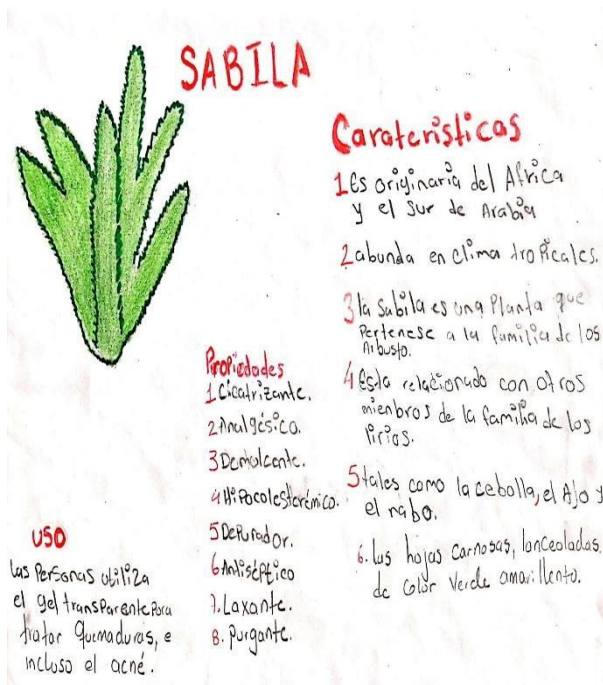 SABILA
Caraterísticas
1 Es originaria del Africa
y el Sur de Arabia
2 abunda en clima tropicales.
3 la sabila es una Planta que
Pertenese a la familia de los
Arbusto.
4 Esta relacionado con otros
mienbros de la familia de los
lirios.
5 tales como la cebolla, el Ajo y
el nabo.
6. las hojas carnosas, lanceoladas,
de color verde amarillento.
Propiedades
1 Cicatrizante.
2 Analgésico.
3 Demulcente.
4 Hipocolesterémico.
5 Depurador.
6 Antiséptico
7. Laxante.
8. Purgante.
USO
las Personas utiliza
el gel transparente Para
tratar Quemaduras, e
incluso el acné.